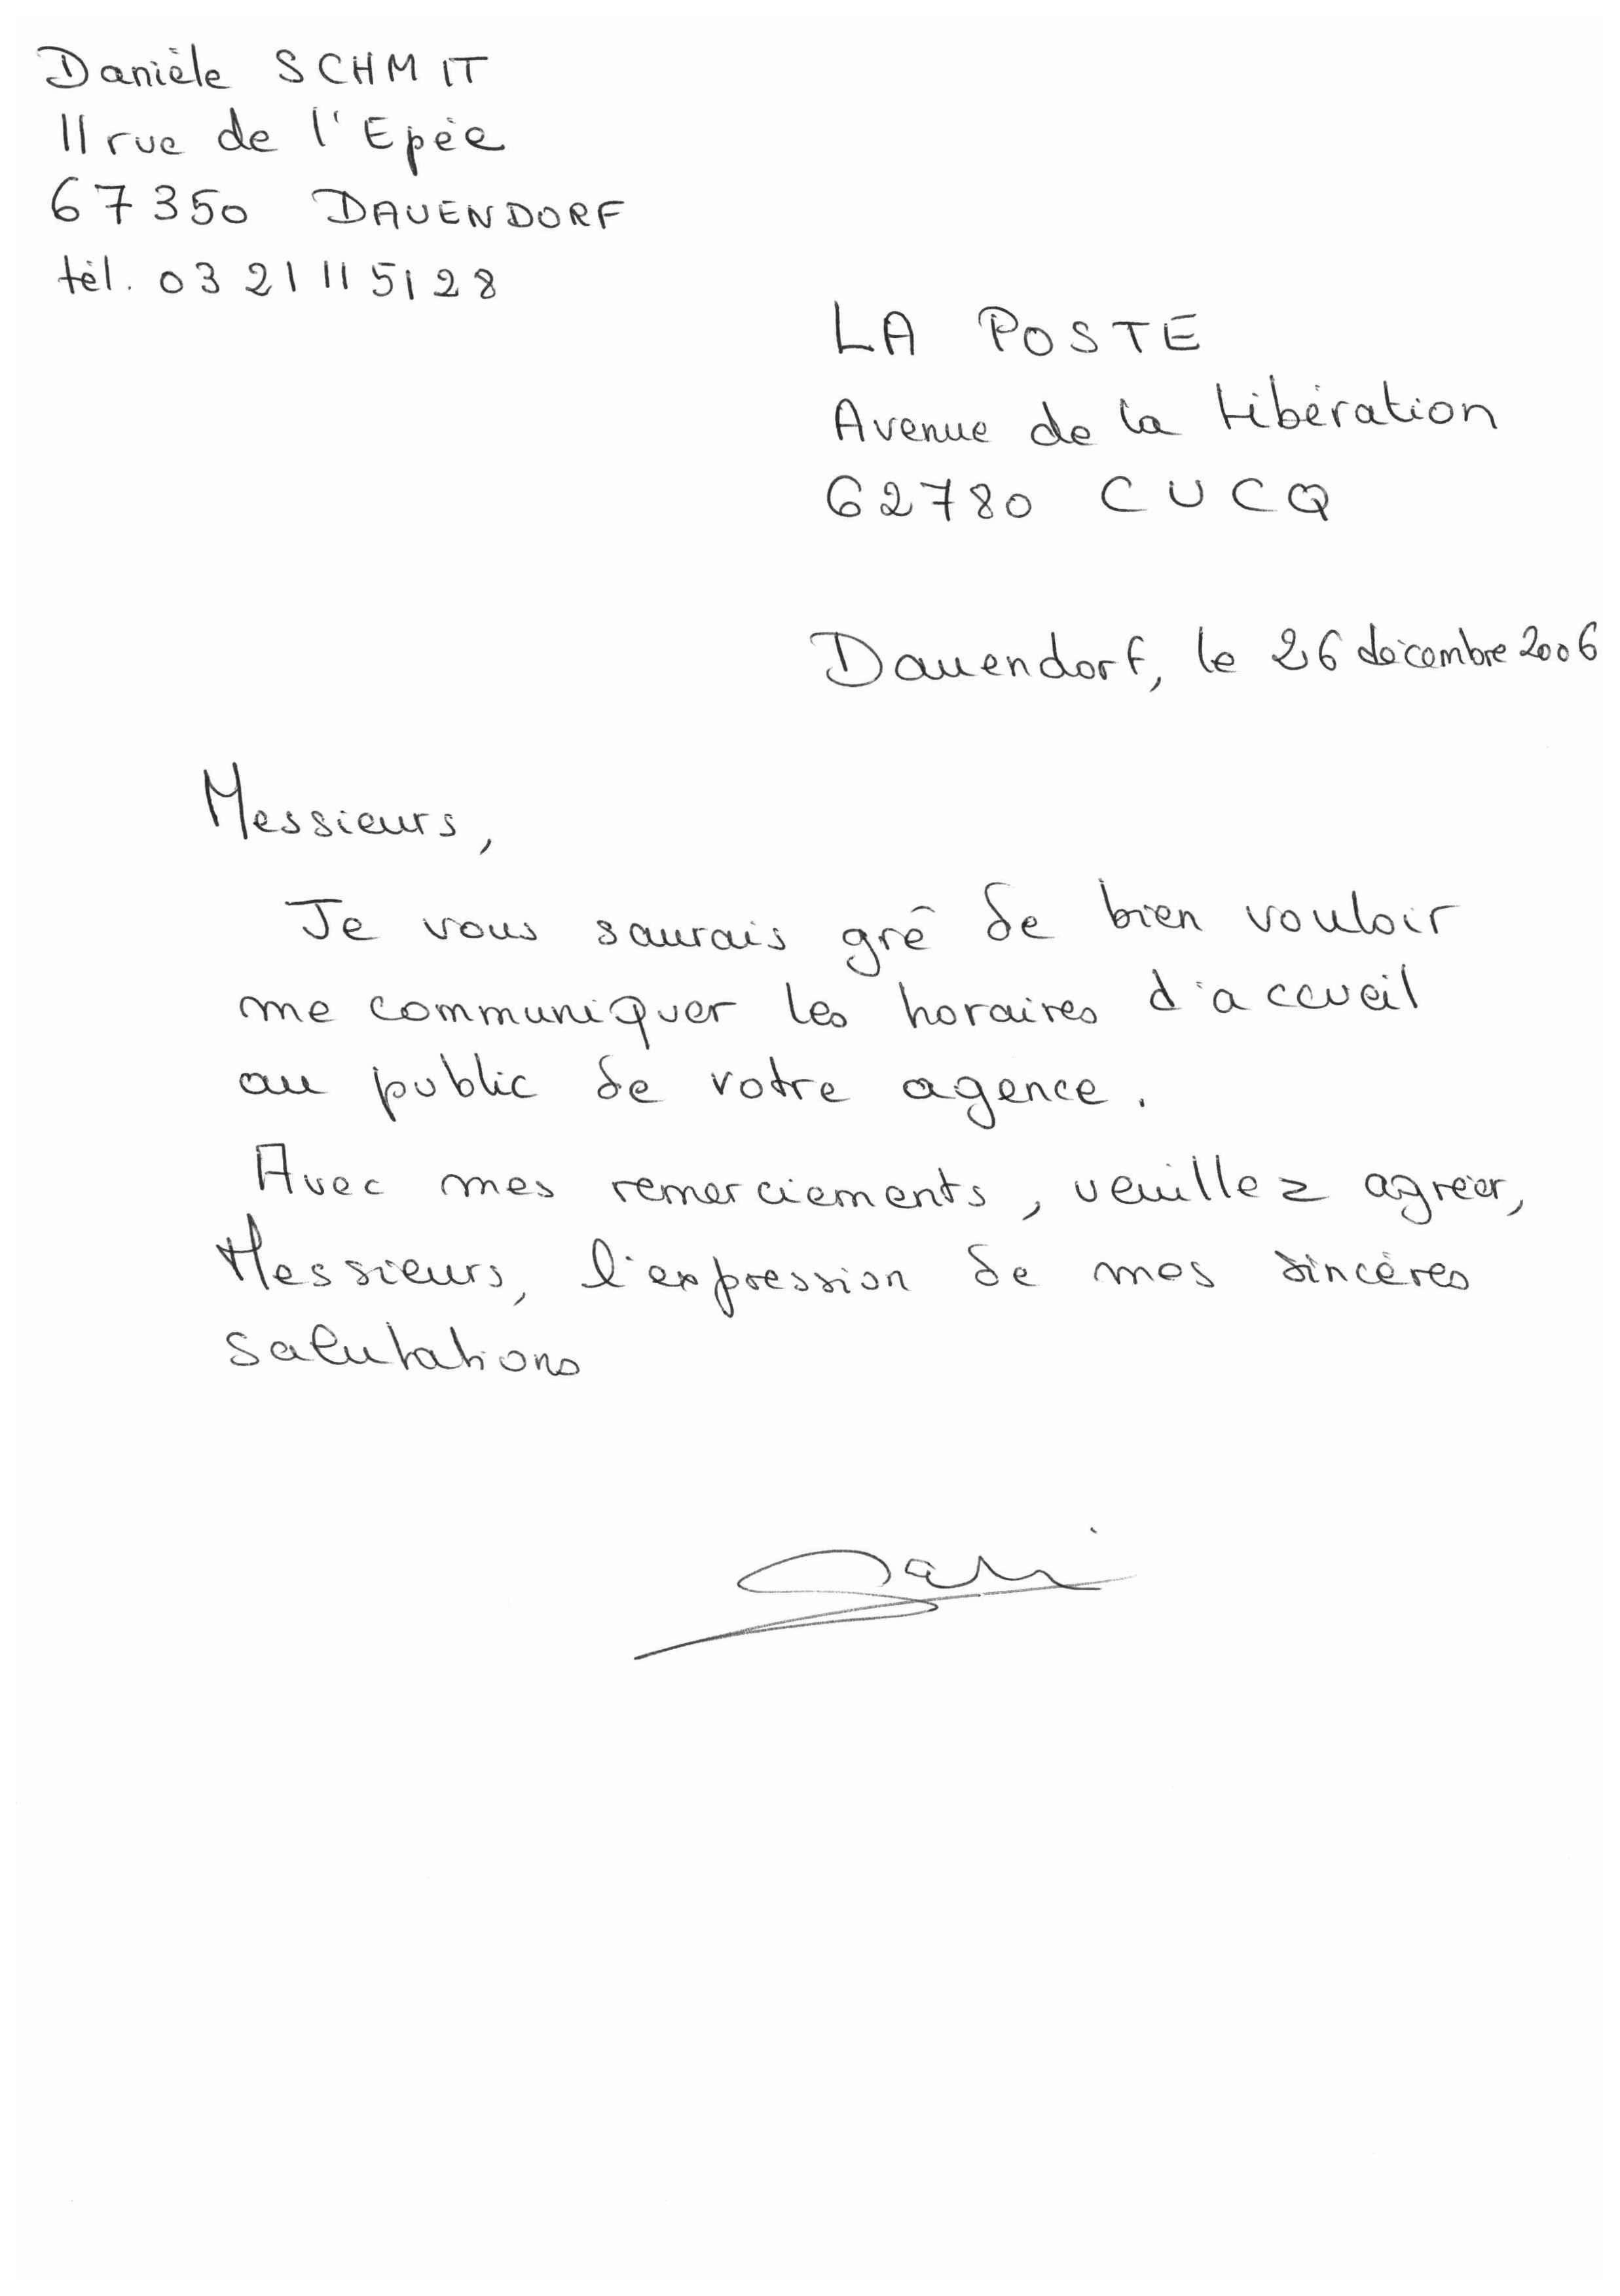 Danièle SCHMIT
11 rue de l'Epée
67350 DAUENDORF
tél. 03 21 11 51 28
LA POSTE
Avenue de la Libération
62780 CUCQ
Dauendorf, le 26 décembre 2006
Messieurs,
Je vous saurais gré de bien vouloir
me communiquer les horaires d'accueil
au public de votre agence.
Avec mes remerciements, veuillez agréer,
Messieurs, l'expression de mes sincères
salutations